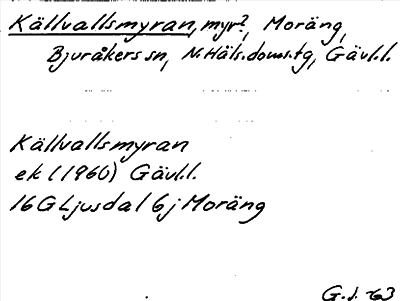 Källvallsmyran, myr?, Moräng,
Bjuråkers sn, N. Häls. doms. tg, Gävl.l.
Källvallsmyran
ek (1960) Gävl.l.
16G Ljusdal 6j Moräng
G.J. 63